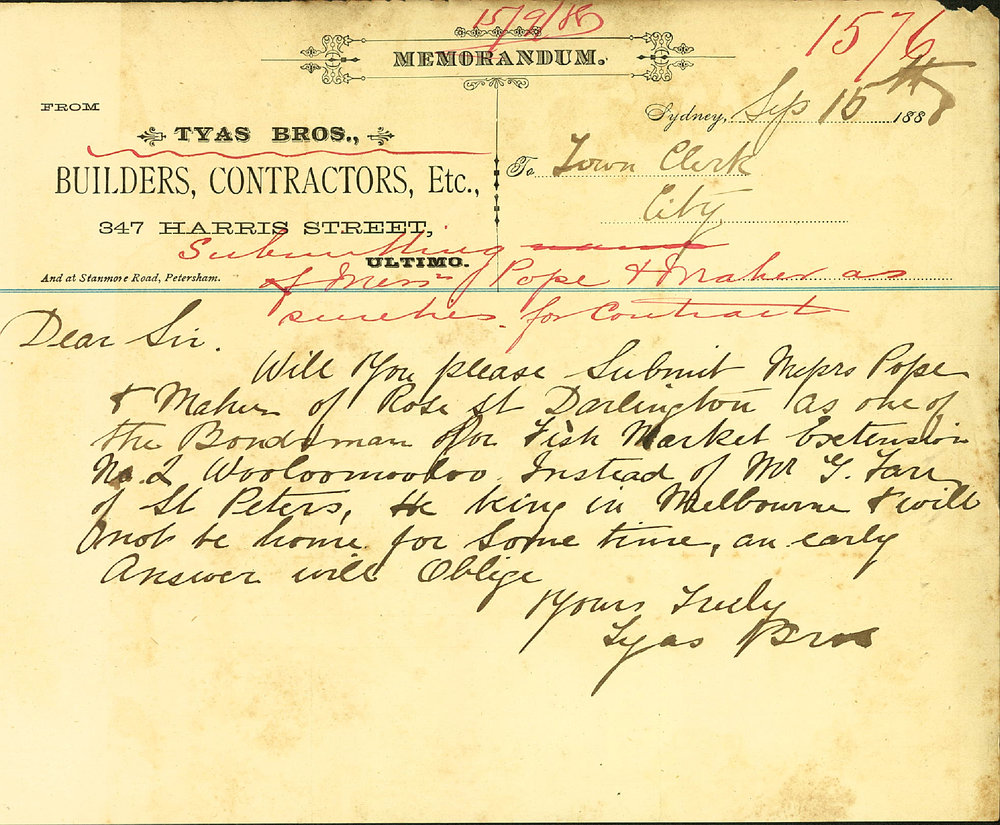 15/9/86
1576
MEMORANDUM.
FROM
TYAS BROS.,
BUILDERS, CONTRACTORS, Etc.,
347 HARRIS STREET,
ULTIMO.
And at Stanmore Road, Petersham.
Sydney, Sep 15th 188
To Town Clerk
City
Submitting
of Messrs Pope & Maher as
sureties for Contract
Dear Sir.
Will You please Submit Messrs Pope
& Maher of Rose St Darlington as one of
the Bondsman for Fish Market Extension
No. 2 Wooloomooloo. Instead of Mr G.
of St Peters, He being in Melbourne & will
not be home for Some time, an early
Answer will Oblige
Yours Truly
Tyas Bros